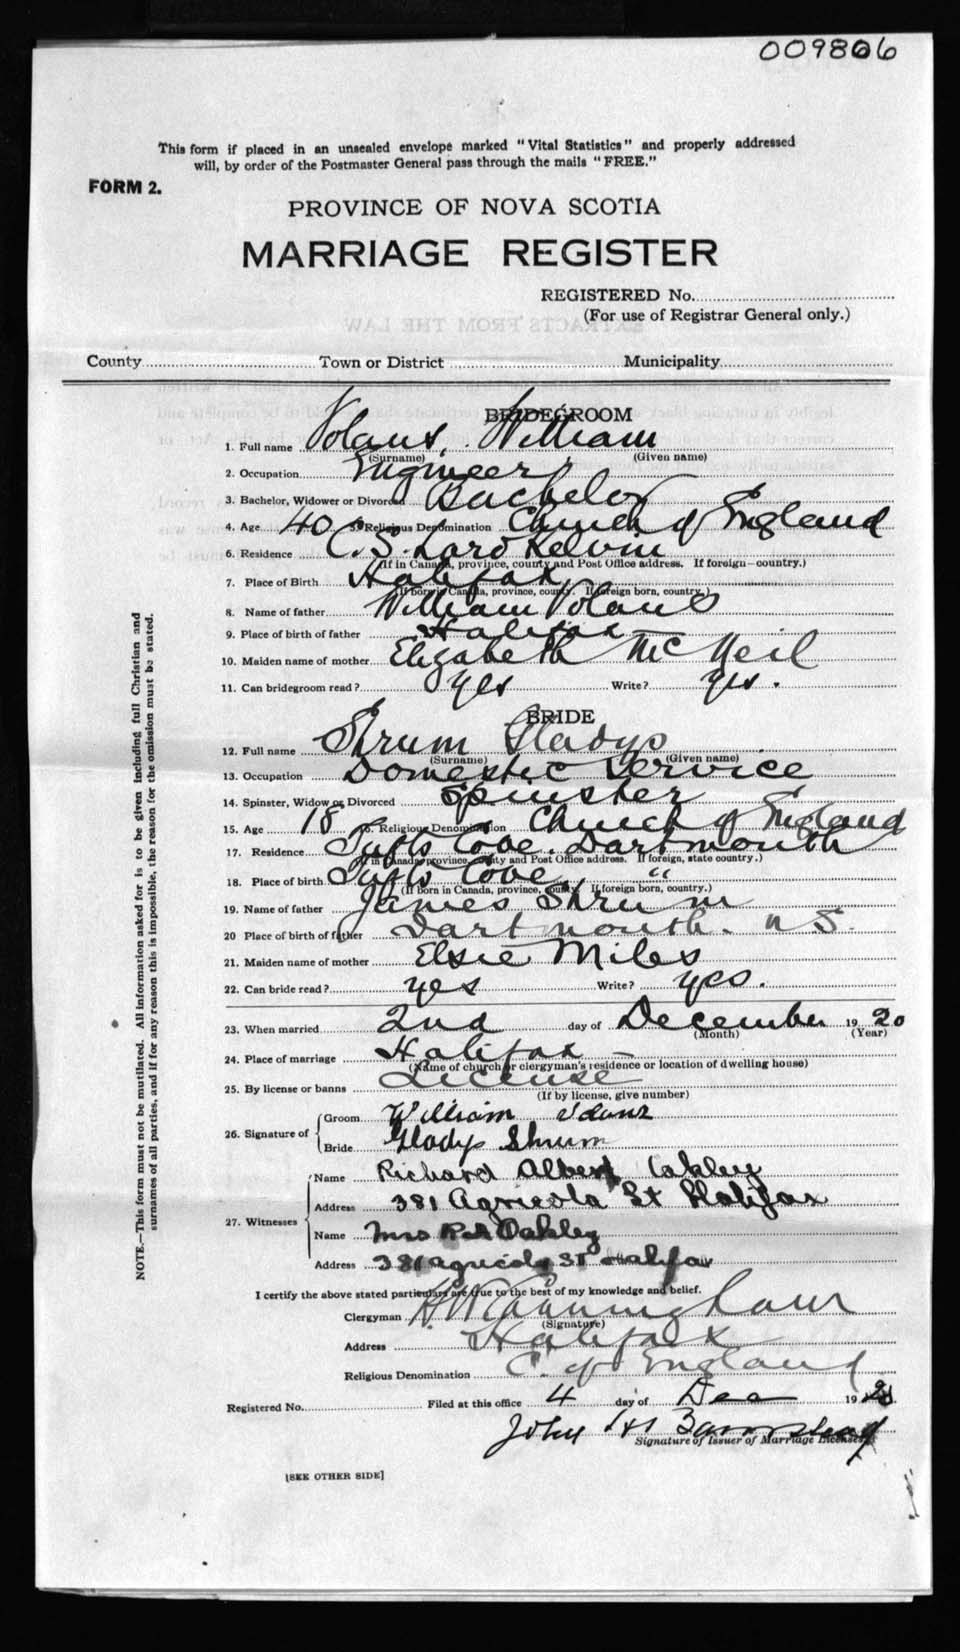 009806
This form if placed in an unsealed envelope marked "Vital Statistics" and properly addressed
will, by order of the Postmaster General pass through the mails "FREE."
FORM 2.
PROVINCE OF NOVA SCOTIA
MARRIAGE REGISTER
REGISTERED No.
(For use of Registrar General only.)
County Town or District Municipality
BRIDEGROOM
1. Full name Volans, William
(Surname) (Given name)
2. Occupation Engineer
3. Bachelor, Widower or Divorced Bachelor
4. Age 40 5. Religious Denomination Church of England
6. Residence C.S. Lord Kelvin
(If in Canada, province, county and Post Office address. If foreign—country.)
7. Place of Birth Halifax
(If born in Canada, province, county. If foreign born, country.)
8. Name of father William Volans
9. Place of birth of father Halifax
10. Maiden name of mother Elizabeth McNeil
11. Can bridegroom read? yes Write? yes.
BRIDE
12. Full name Shrum Gladys
(Surname) (Given name)
13. Occupation Domestic Service
14. Spinster, Widow or Divorced Spinster
15. Age 18 16. Religious Denomination Church of England
17. Residence Tufts Cove. Dartmouth
(If in Canada, province, county and Post Office address. If foreign, state country.)
18. Place of birth Tufts Cove "
(If born in Canada, province, county. If foreign born, country.)
19. Name of father James Shrum
20 Place of birth of father Dartmouth. N S.
21. Maiden name of mother Elsie Miles
22. Can bride read? yes Write? yes.
23. When married 2nd day of December 1920
(Month) (Year)
24. Place of marriage Halifax –
(Name of church or clergyman's residence or location of dwelling house)
25. By license or banns License
(If by license, give number)
26. Signature of Groom William Volans
Bride Gladys Shrum
27. Witnesses Name Richard Albert Oakley
Address 381 Agricola St Halifax
Name Mrs R.A Oakley
Address 381 agricola St Halifax
I certify the above stated particulars are true to the best of my knowledge and belief.
Clergyman Cunningham
(Signature)
Address Halifax
Religious Denomination C. of England
Registered No. Filed at this office 4 day of Dec 192
John
Signature of Issuer of Marriage Licenses
[SEE OTHER SIDE]
NOTE.—This form must not be mutilated. All information asked for is to be given including full Christian and
surnames of all parties, and if for any reason this is impossible, the reason for the omission must be stated.